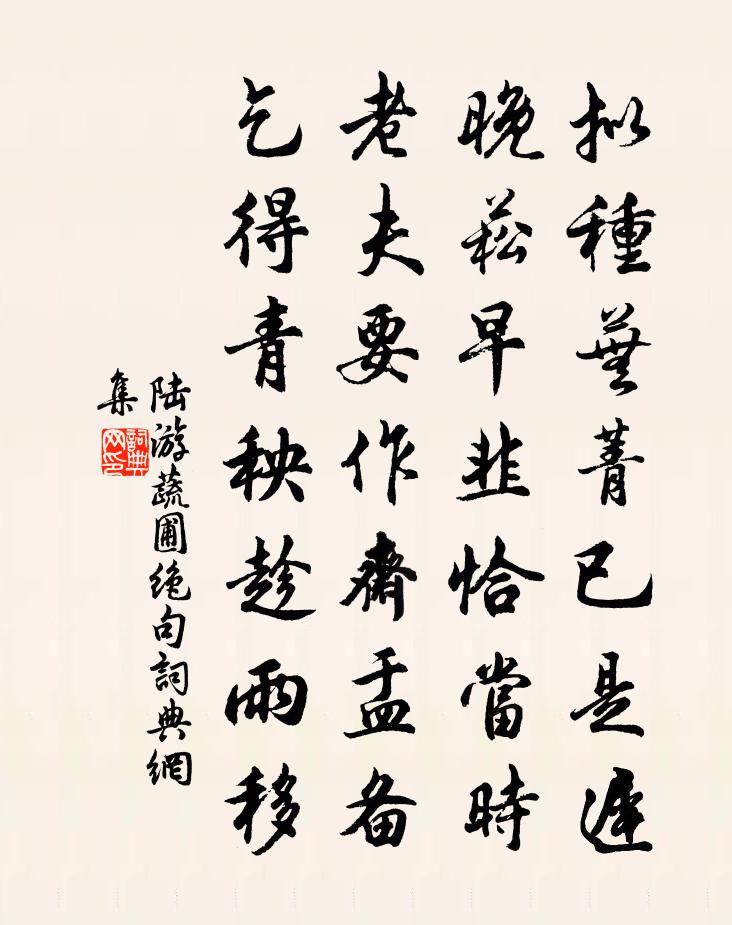 拟種蕪菁已是遲
晚菘早韭恰當時
老夫要作齋盂备
乞得青秧趁雨移
陆游蔬圃絶句詞典網
集
詞典网印